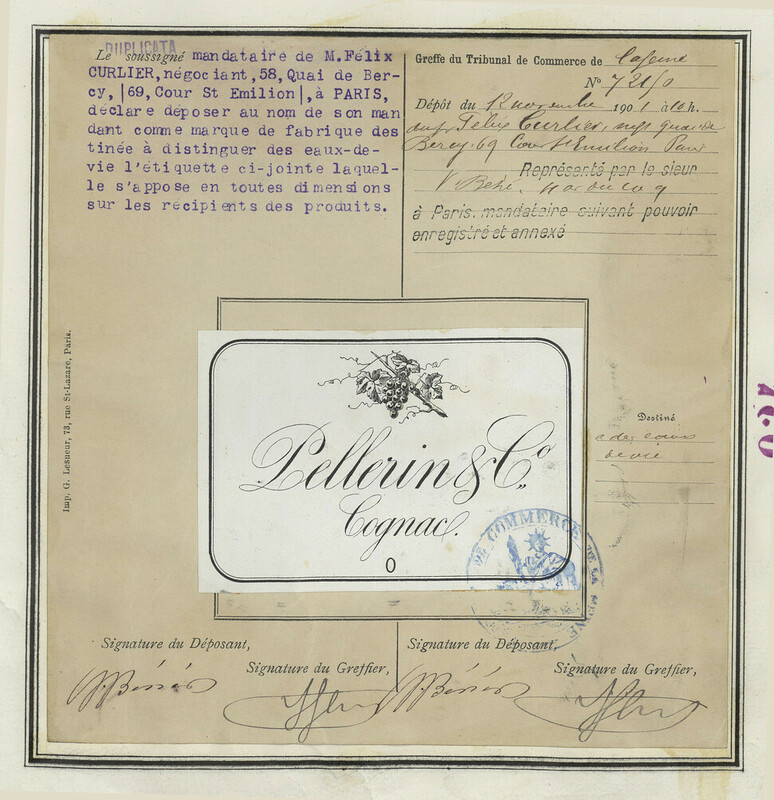 DUPLICATA
Le soussigné mandataire de M.Félix
CURLIER,négociant,58, Quai de Ber-
cy, |69, Cour St Emilion|,à PARIS,
déclare déposer au nom de son man
dant comme marque de fabrique des
tinée à distinguer des eaux-de-
vie l'étiquette ci-jointe laquel-
le s'appose en toutes dimensions
sur les récipients des produits.
Greffe du Tribunal de Commerce de la Seine
Nº 721/0
Dépôt du 12 novembre 1901 à 10 h.
Félix Curlier, quai de
Bercy. 69 Cour St Emilion Paris
Représenté par le sieur
à Paris, mandataire suivant pouvoir
enregistré et annexé
Imp. G. Lesueur, 73, rue St-Lazare, Paris.
Destiné
a des eaux
de vie
Pellerin & Cº
Cognac.
0
DE COMMERCE DE LA SEINE
Signature du Déposant,
Signature du Greffier,
Signature du Déposant,
Signature du Greffier,